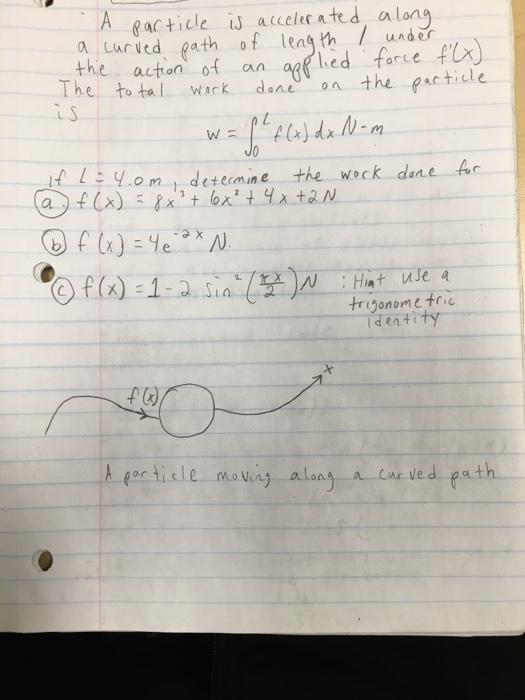 A particle is accelerated along
a curved path of length l under
the action of an applied force f'(x)
The total work done on the particle
is
w = ∫₀ᴸ f(x) dx N-m
If L = 4.0 m, determine the work done for
(a.) f(x) = 8x³ + 6x² + 4x + 2 N
(b) f(x) = 4e⁻²ˣ N.
(c) f(x) = 1 - 2 sin² (πx/2) N : Hint use a
trigonometric
identity
f(x)
x
A particle moving along a curved path